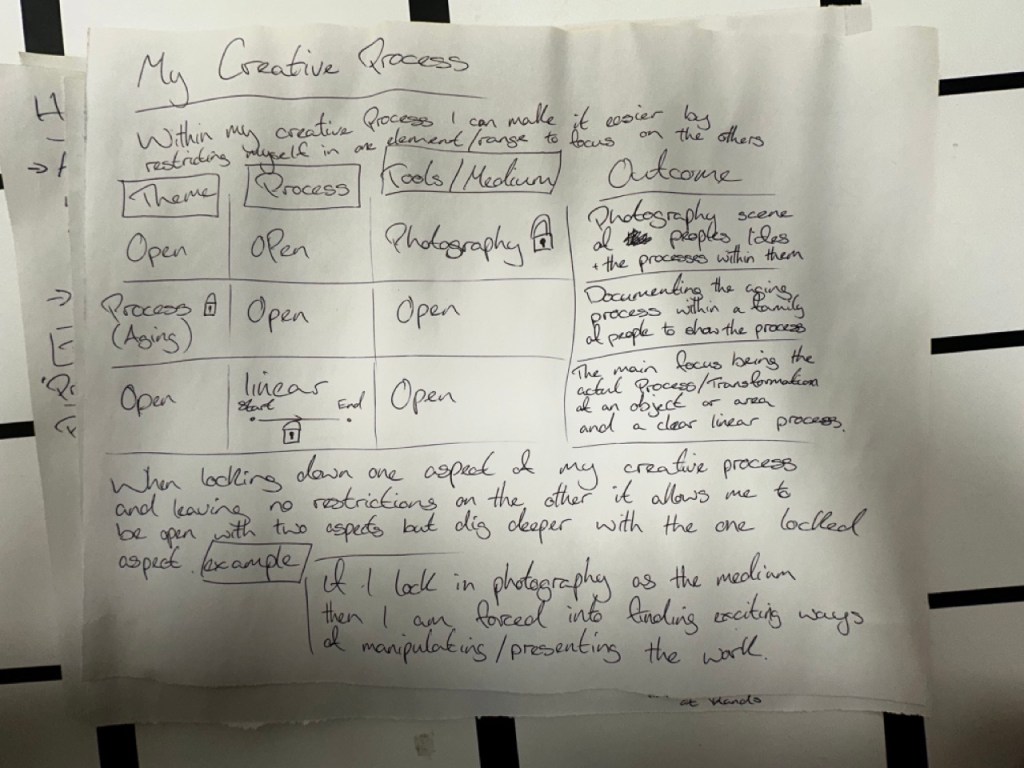 My Creative Process
Within my creative Process I can make it easier by
restricting myself in one element/range to focus on the others
Theme
Process
Tools/Medium
Outcome
Open
OPen
Photography
Photography scene
of peoples
+ the processes within them
Process
(Aging)
Open
Open
Documenting the aging
process within a family
of people to show the process
Open
linear
Start End
Open
The main focus being the
actul Process/Transformation
of an object or area
and a clear linear process.
When locking down one aspect of my creative process
and leaving no restrictions on the other it allows me to
be open with two aspets but dig deeper with the one locked
aspect. example
if I lock in photography as the medium
then I am forced into finding exciting ways
of manipulating/presenting the work.
H